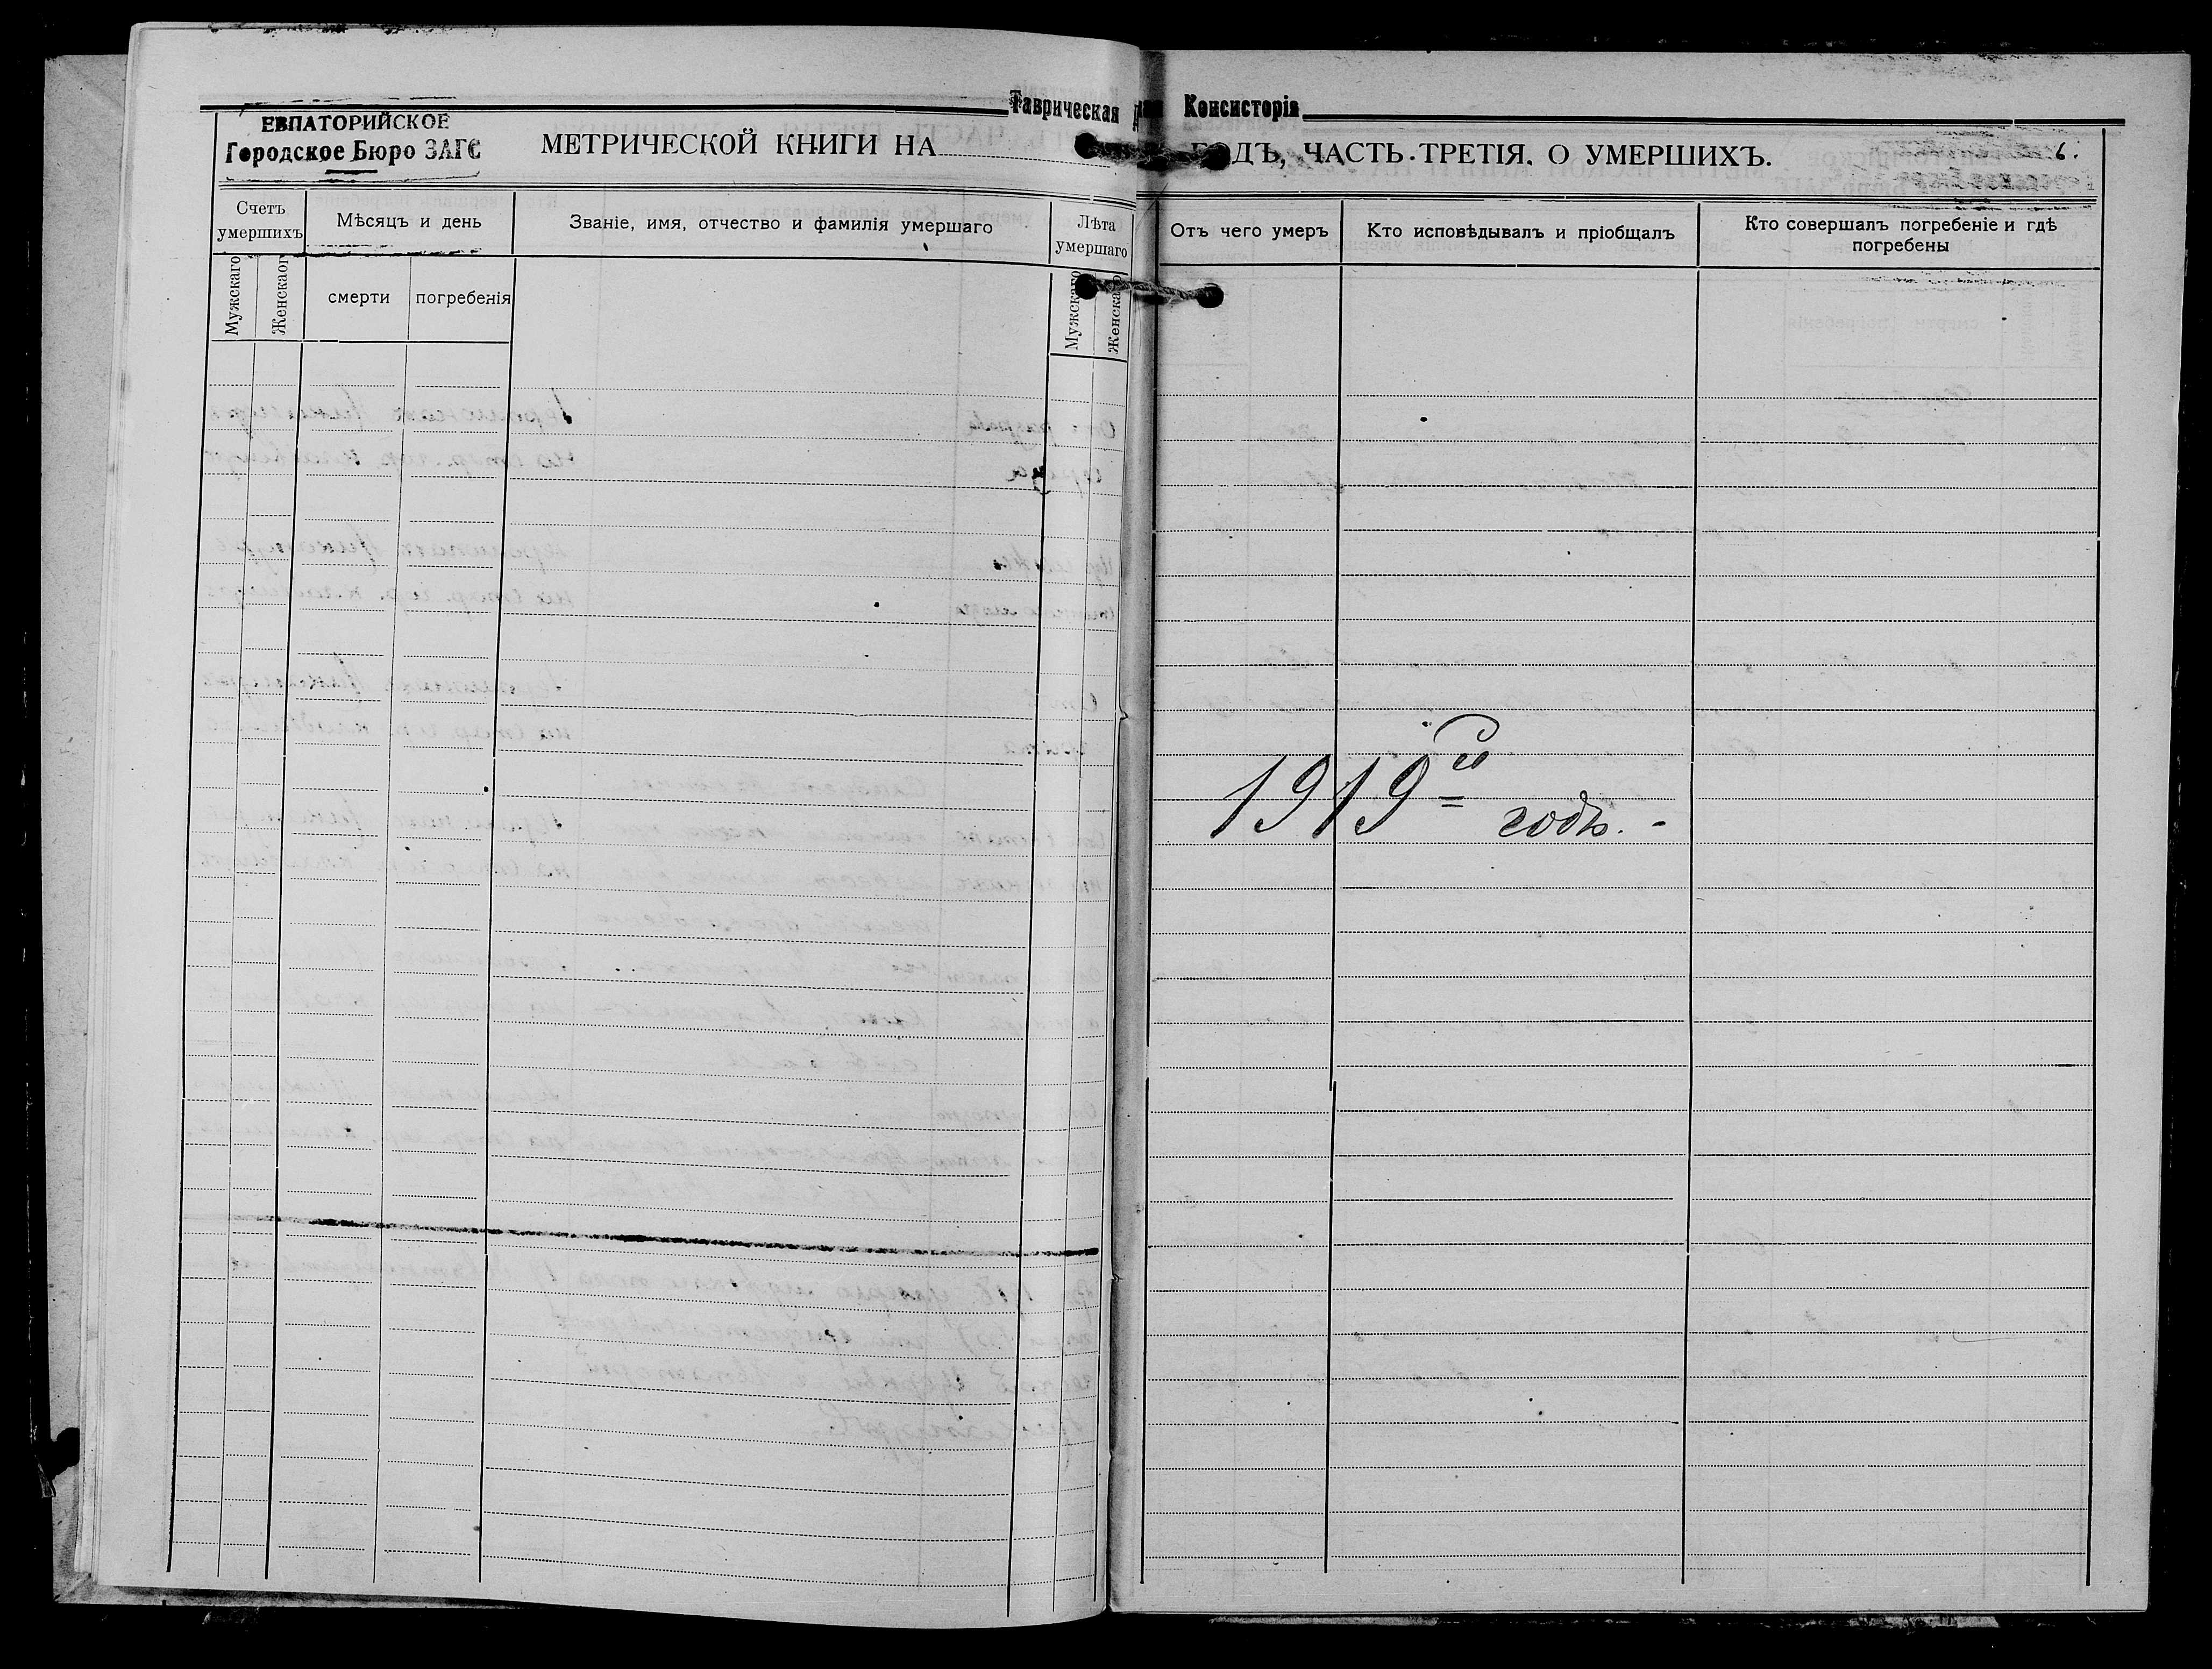 Таврическая Консисторія
ЕВПАТОРИЙСКОЕ
Городское Бюро ЗАГС
МЕТРИЧЕСКОЙ КНИГИ НА ГОДЪ, ЧАСТЬ ТРЕТІЯ. О УМЕРШИХЪ.
6.
Счетъ умершихъ
Мѣсяцъ и день
Званіе, имя, отчество и фамилія умершаго
Лѣта умершаго
Отъ чего умеръ
Кто исповѣдывалъ и пріобщалъ
Кто совершалъ погребеніе и гдѣ
погребены
Мужскаго
Женскаог
смерти
погребенія
Мужскаго
Женскаго
1919й годъ.-